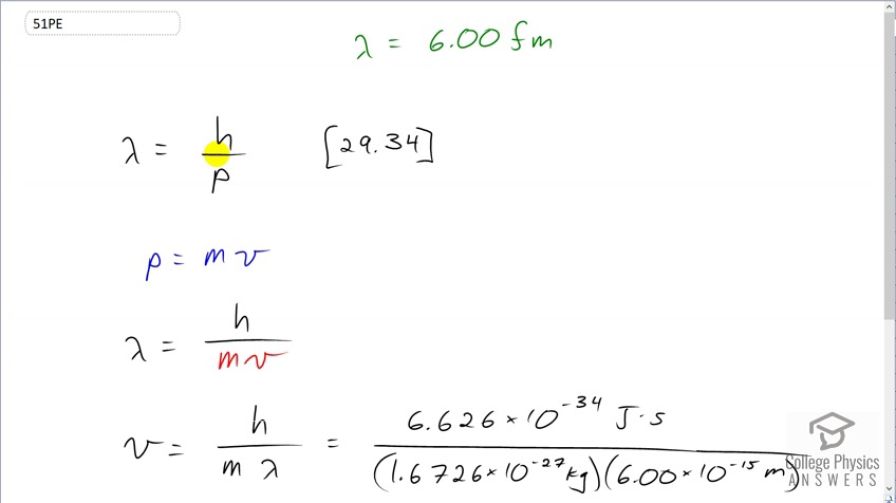 51PE
λ = 6.00 fm
λ = h/p [29.34]
p = mv
λ = h/mv
v = h/mλ = 6.626×10^-34 J·s/(1.6726×10^-27 kg)(6.00×10^-15 m)
College Physics
ANSWERS